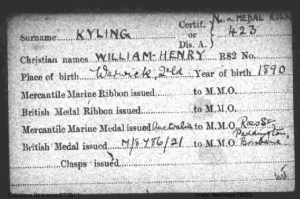 No. on MEDAL ROLL
Surname KYLING Certif. or Dis. A. } 423
Christian names WILLIAM-HENRY R.S2 No.
Place of birth Warwick, Qld Year of birth 1890
Mercantile Marine Ribbon issued to M.M.O.
British Medal Ribbon issued to M.M.O.
Mercantile Marine Medal issued Australia to M.M.O. Ross St
British Medal issued M/8786/21 to M.M.O. Paddington, Brisbane
Clasps issued